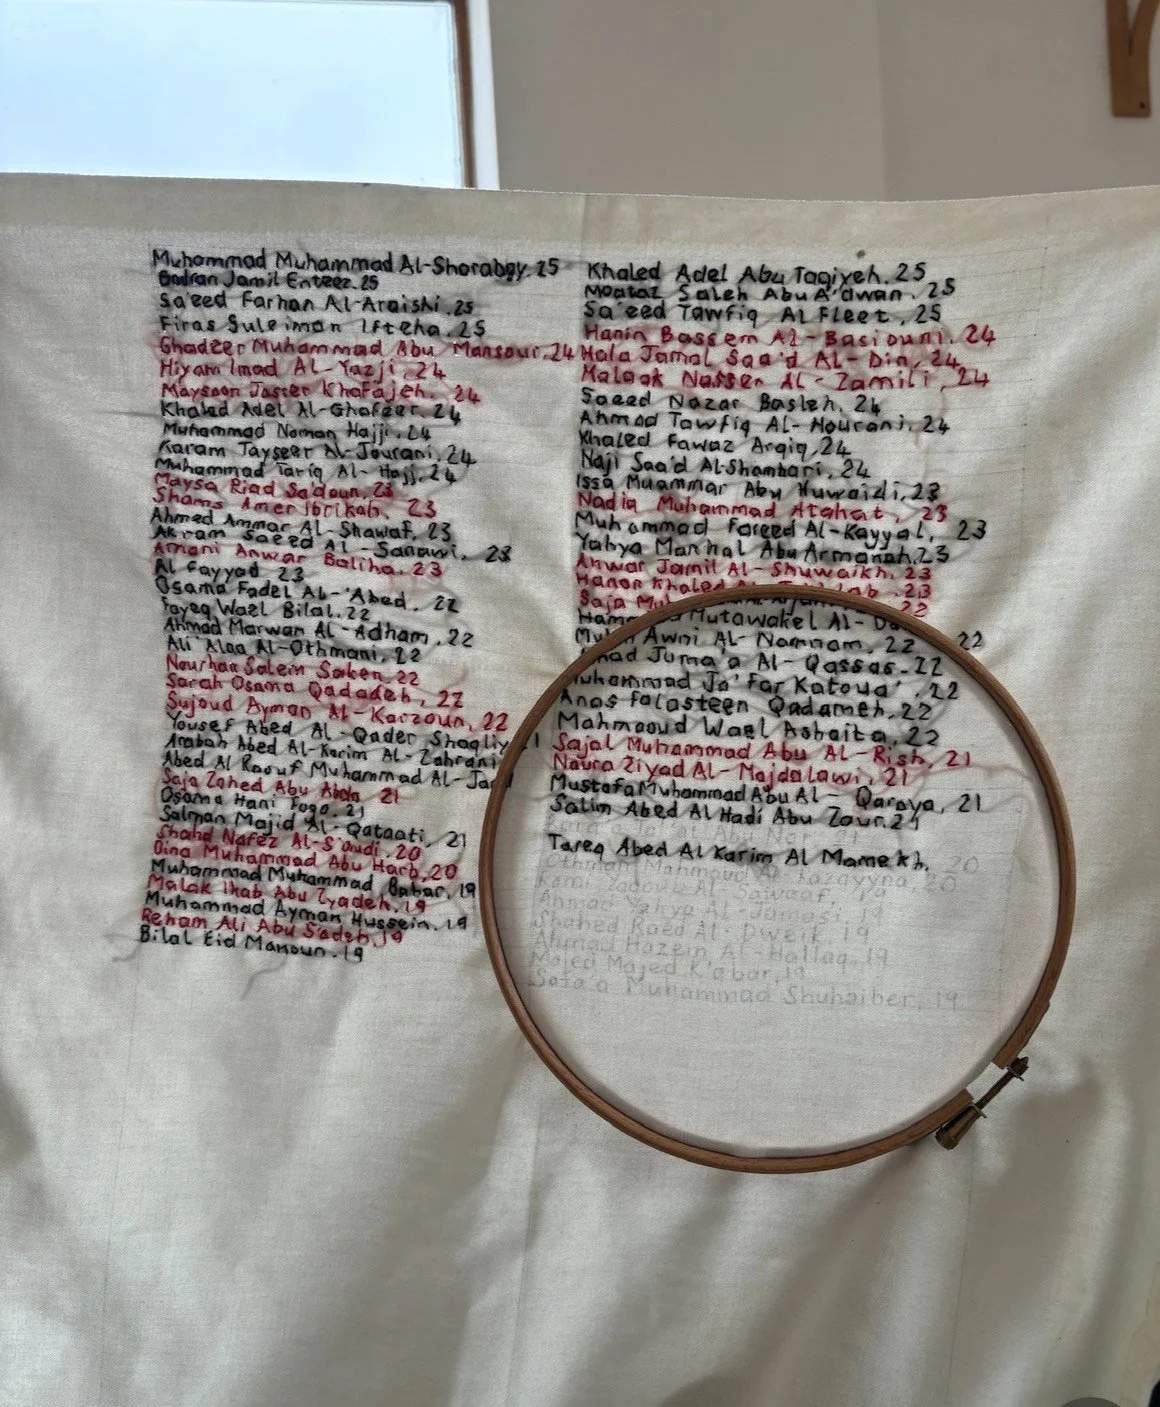 Muhammad Muhammad Al-Shorabgy. 25
Badran Jamil Enteez. 25
Sa'eed Farhan Al-Araishi. 25
Firas Suleiman Ifteha. 25
Ghadeer Muhammad Abu Mansour. 24
Hiyam Imad Al-Yazji. 24
Maysoon Jasser Khafajeh. 24
Khaled Adel Al-Ghafeer. 24
Muhammad Noman Hajji. 24
Karam Tayseer Al-Jourani. 24
Muhammad Tariq Al-Hajj. 24
Maysa Riad Sa'doun. 23
Shams Amer Ibrikah. 23
Ahmed Ammar Al-Shawaf. 23
Akram Saeed Al-Sanawi. 23
Amani Anwar Baliha. 23
Al Fayyad 23
Osama Fadel Al-'Abed. 22
Fayeq Wael Bilal. 22
Ahmad Marwan Al-Adham. 22
Ali Alaa Al-Othmani. 22
Nourhan Salem Saken. 22
Sarah Osama Qadadeh, 22
Sujoud Ayman Al-Karzoun, 22
Yousef Abed Al-Qader Shaqliy
Arabah Abed Al-Karim Al-Zahrani
Abed Al Raouf Muhammad Al-
Saja Zahed Abu Abda 21
Osama Hani Foqo. 21
Salman Majid Al-Qataati, 21
Shahd Nafez Al-S'oudi. 20
Dina Muhammad Abu Harb. 20
Muhammad Muhammad Babar. 19
Malak Ihab Abu Zyadeh. 19
Muhammad Ayman Hussein. 19
Reham Ali Abu S'adeh. 19
Bilal Eid Manoun. 19
Khaled Adel Abu Taqiyeh. 25
Moataz Saleh Abu A'dwan. 25
Sa'eed Tawfiq Al Fleet. 25
Hanin Bassem Al-Basiouni. 24
Hala Jamal Saa'd Al-Din, 24
Malaak Nasser Al-Zamili, 24
Saeed Nazar Basleh. 24
Ahmad Tawfiq Al-Hourani. 24
Khaled Fawaz Arqiq, 24
Naji Saa'd Al-Shambari. 24
Issa Muammar Abu Huwaidi. 23
Nadia Muhammad Atahat, 23
Muhammad Fareed Al-Kayyal, 23
Yahya Manhal Abu Armanah. 23
Anwar Jamil Al-Shuwaikh. 23
Hanan Khaled 23
Saja 22
Mutawakel Al-
Awni Al-Namnam, 22 22
Juma'a Al-Qassas. 22
Muhammad Ja'far Katoua'. 22
Anas Falasteen Qadameh. 22
Mahmooud Wael Ashaita. 22
Sajal Muhammad Abu Al-Rish, 21
Noura Ziyad Al-Majdalawi, 21
Mustafa Muhammad Abu Al-Qaraya, 21
Salim Abed Al Hadi Abu Zour. 21
Abu Nar 21
Tareq Abed Al Karim Al Mamekh. 20
Othman Mahmoud Al-Zazayyna, 20
Rami 19
Ahmad Yahya Al-
Shahed Raed Al-Dweik. 19
Ahmad Hazem Al-Hallaq, 19
Majed Majed K'abar, 19
Muhammad Shuhaiber, 19